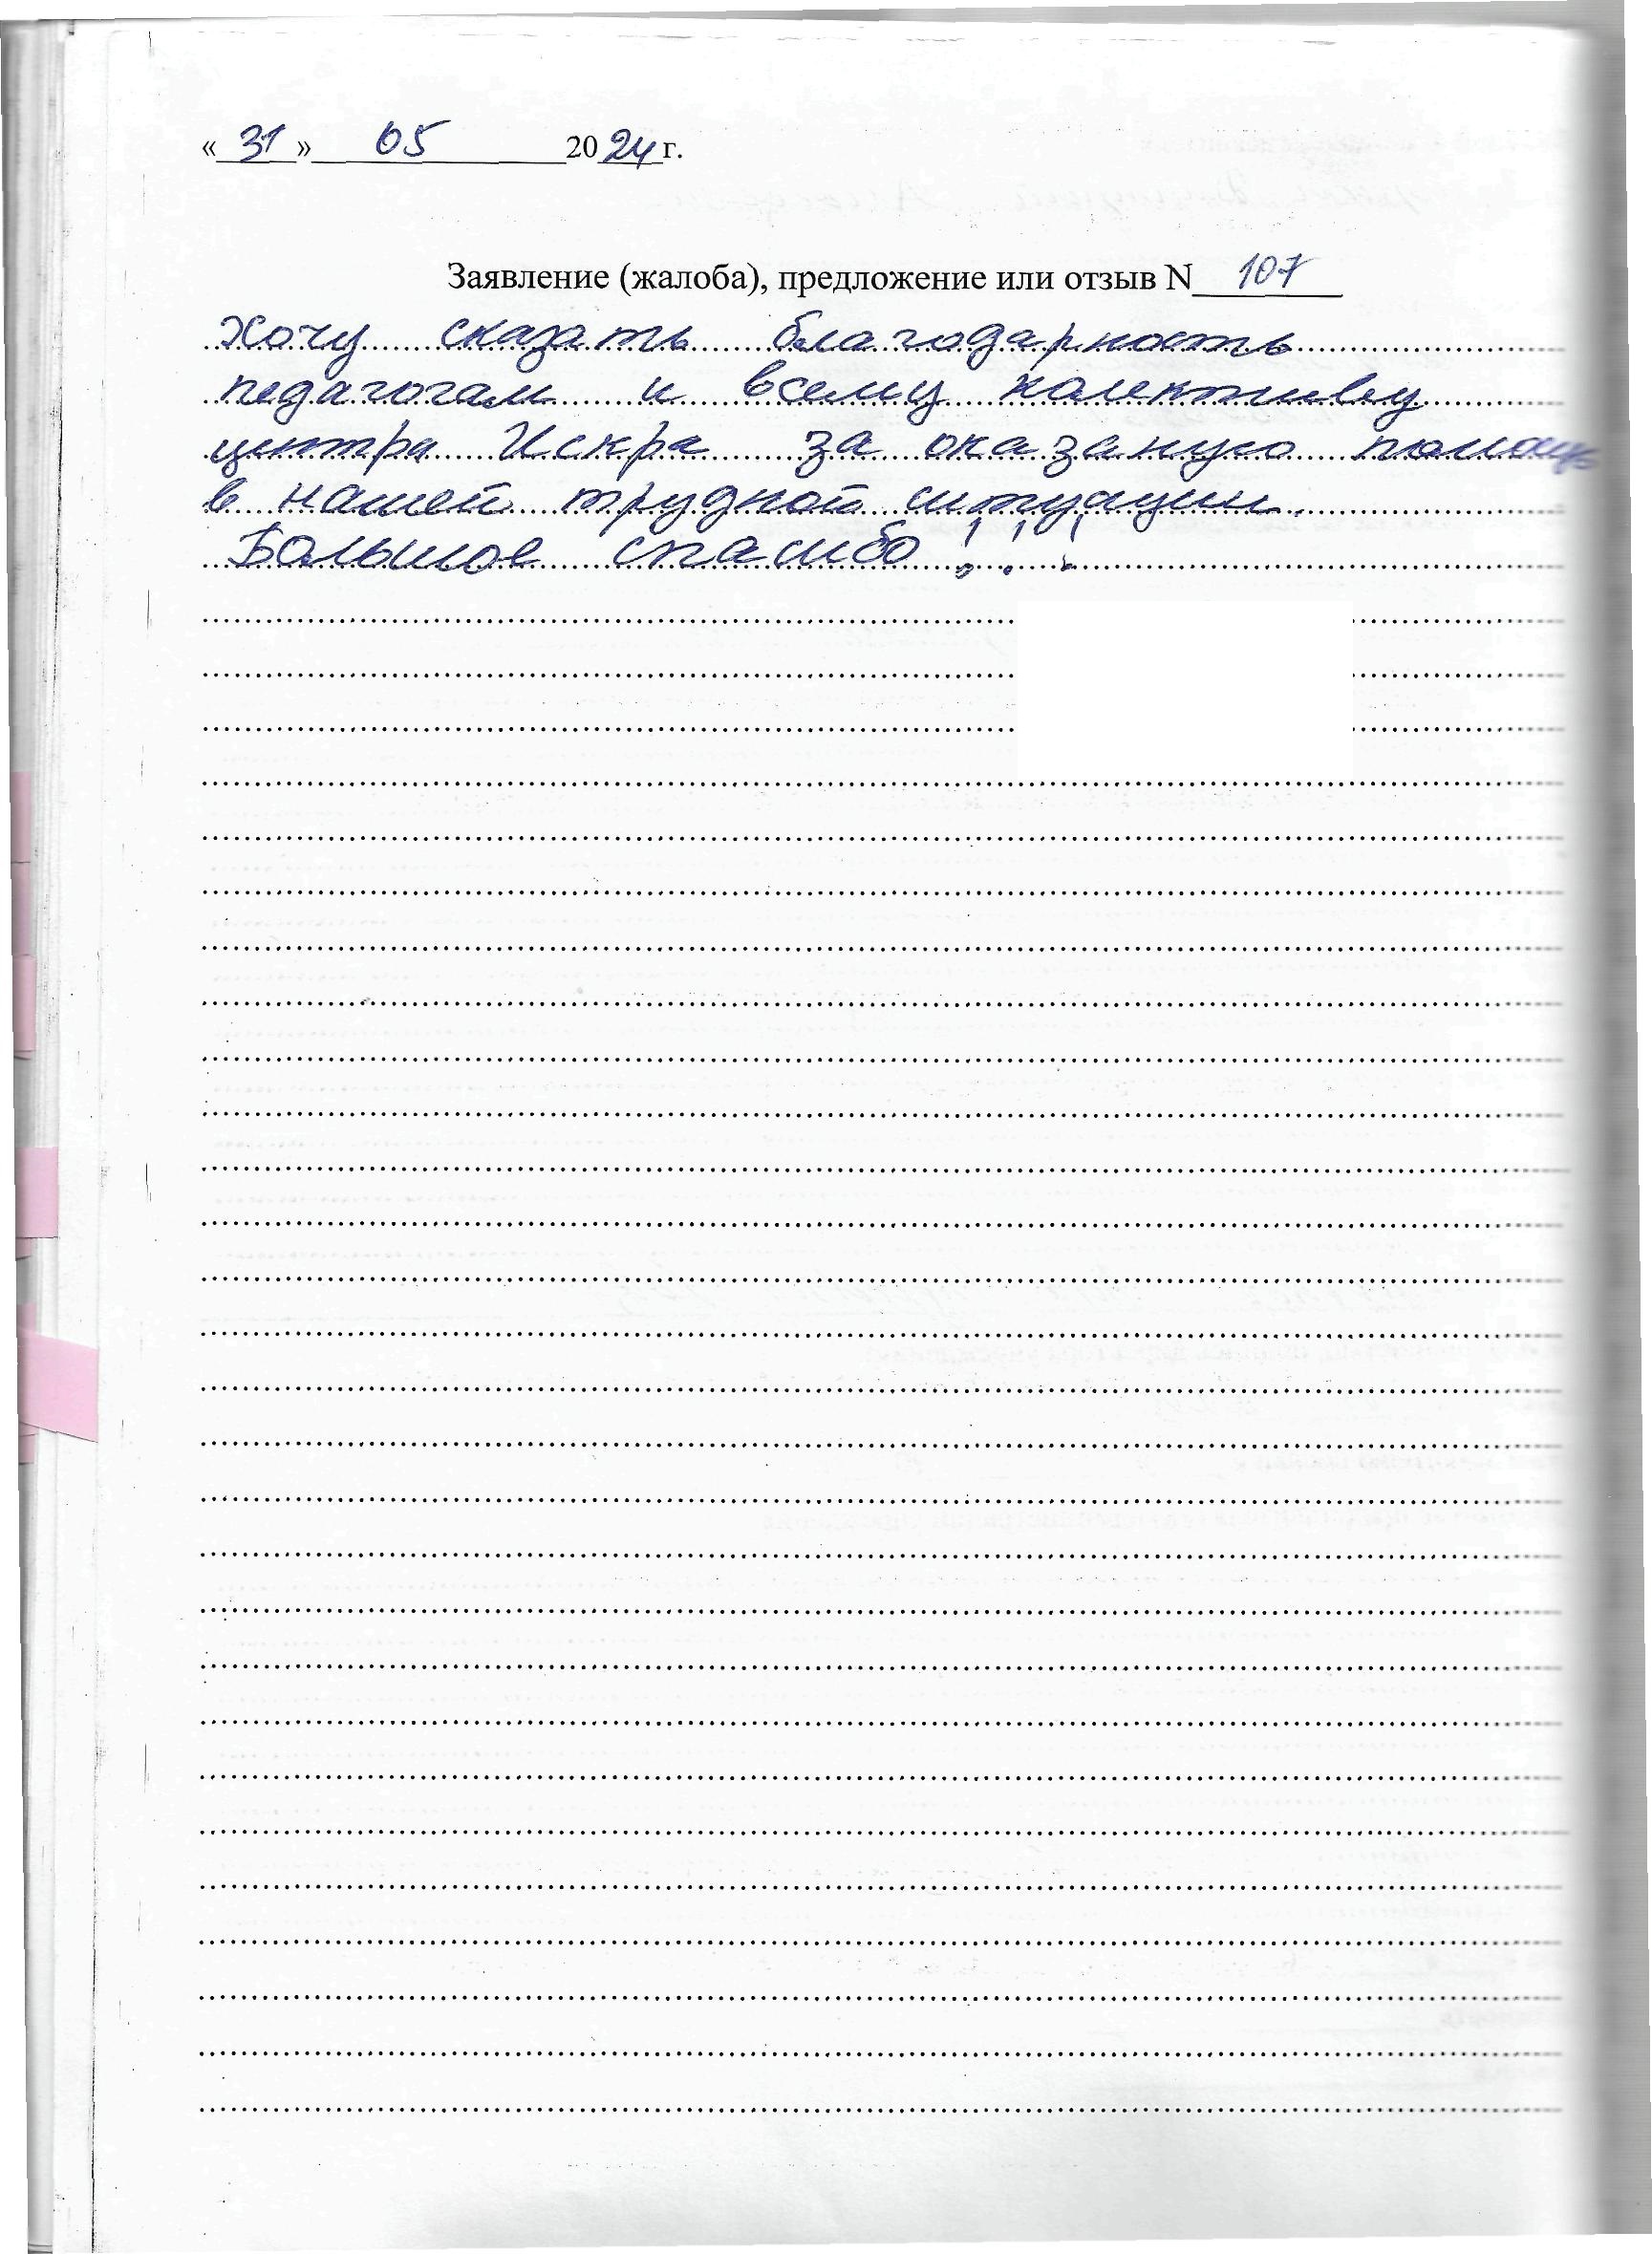 «31» 05 2024 г.
Заявление (жалоба), предложение или отзыв N 107
Хочу сказать благодарность
педагогам и всему колективу
центра Искра за оказаную помощь
в нашей трудной ситуации.
Большое спасибо!!!